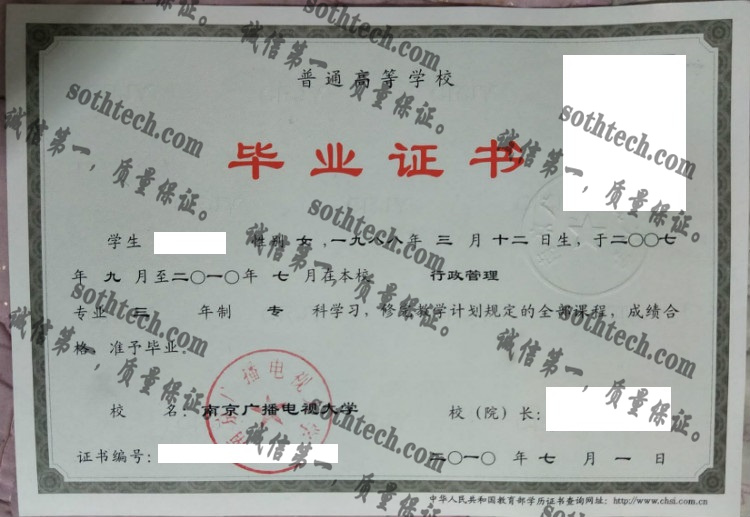 普通高等学校
毕业证书
学生 性别 女 ,一九八八年 三 月 十二 日生，于二〇〇七
年 九 月至二〇一〇年 七 月在本校 行政管理
专业 三 年制 专 科学习，修完教学计划规定的全部课程，成绩合
格，准予毕业.
校 名：南京广播电视大学 校（院）长：
证书编号： 二〇一〇 年 七 月 一 日
中华人民共和国教育部学历证书查询网址：http://www.chsi.com.cn
南京广播电视大学
sothtech.com
诚信第一，质量保证。
sothtech.com
诚信第一，质量保证。
sothtech.com
诚信第一，质量保证。
sothtech.com
诚信第一，质量保证。
sothtech.com
诚信第一，质量保证。
sothtech.com
诚信第一，质量保证。
sothtech.com
诚信第一，质量保证。
sothtech.com
诚信第一，质量保证。